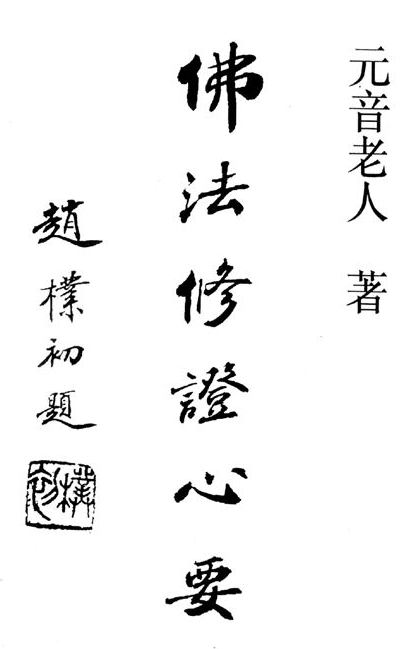 元音老人 著
佛法修證心要
趙樸初題
樸初